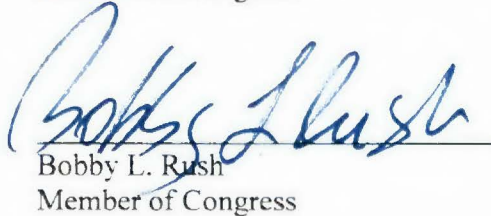 Bobby L Rush
Bobby L. Rush
Member of Congress